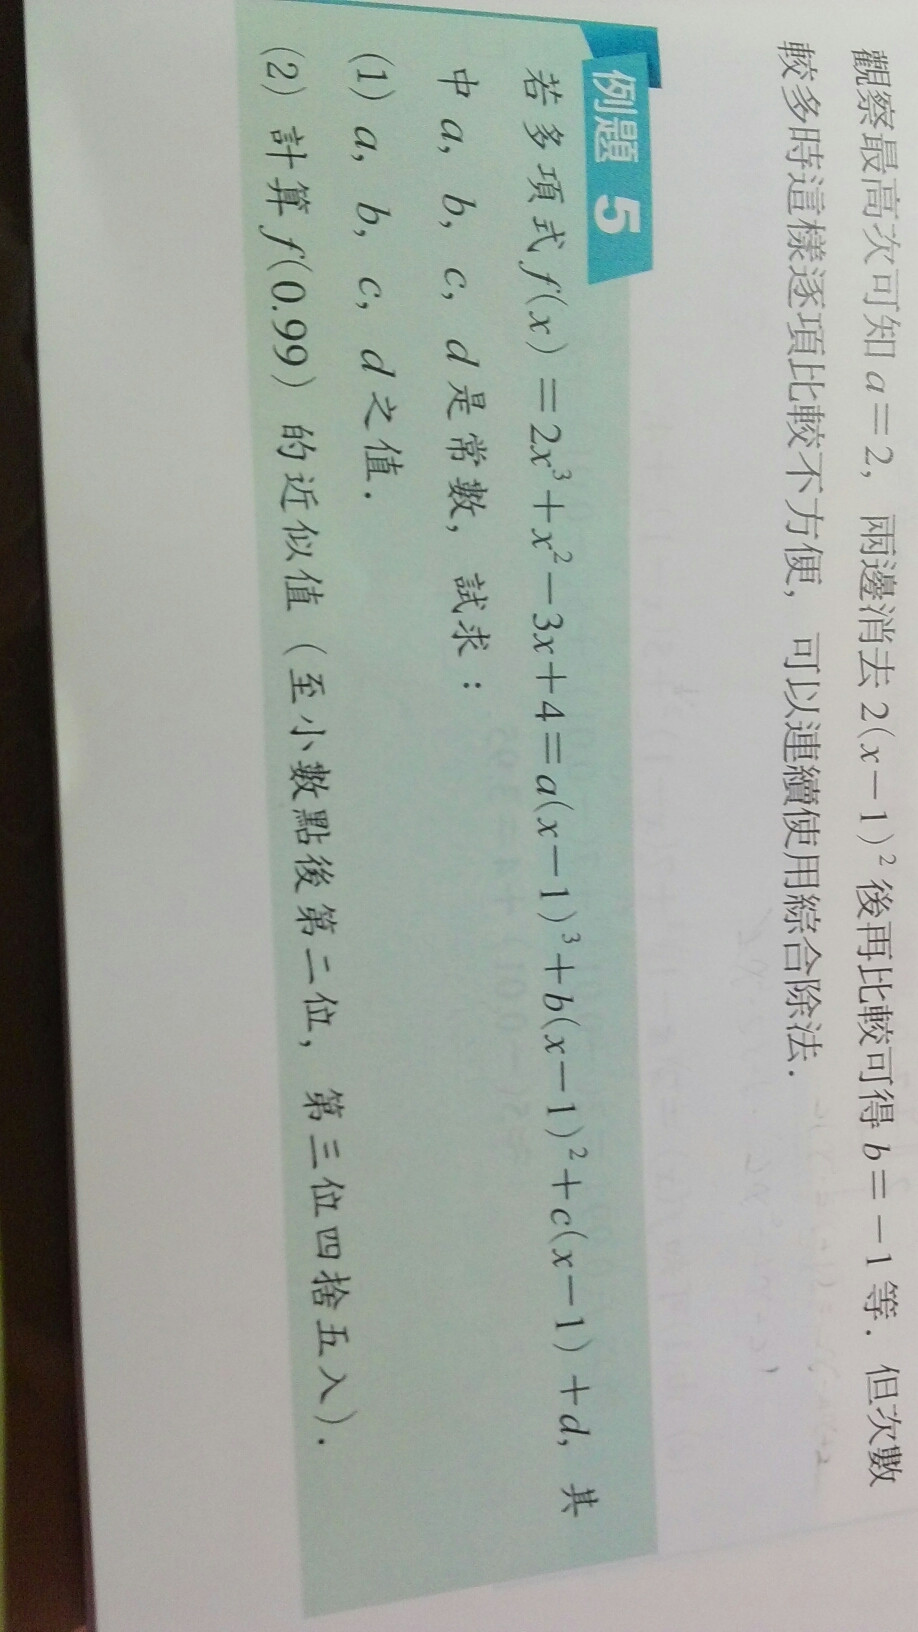 觀察最高次可知 a=2, 兩邊消去 2(x-1)² 後再比較可得 b=-1 等. 但次數
較多時這樣逐項比較不方便, 可以連續使用綜合除法.
例題 5
若多項式 f(x)=2x³+x²-3x+4=a(x-1)³+b(x-1)²+c(x-1)+d, 其
中 a, b, c, d 是常數, 試求:
(1) a, b, c, d 之值.
(2) 計算 f(0.99) 的近似值 (至小數點後第二位, 第三位四捨五入).